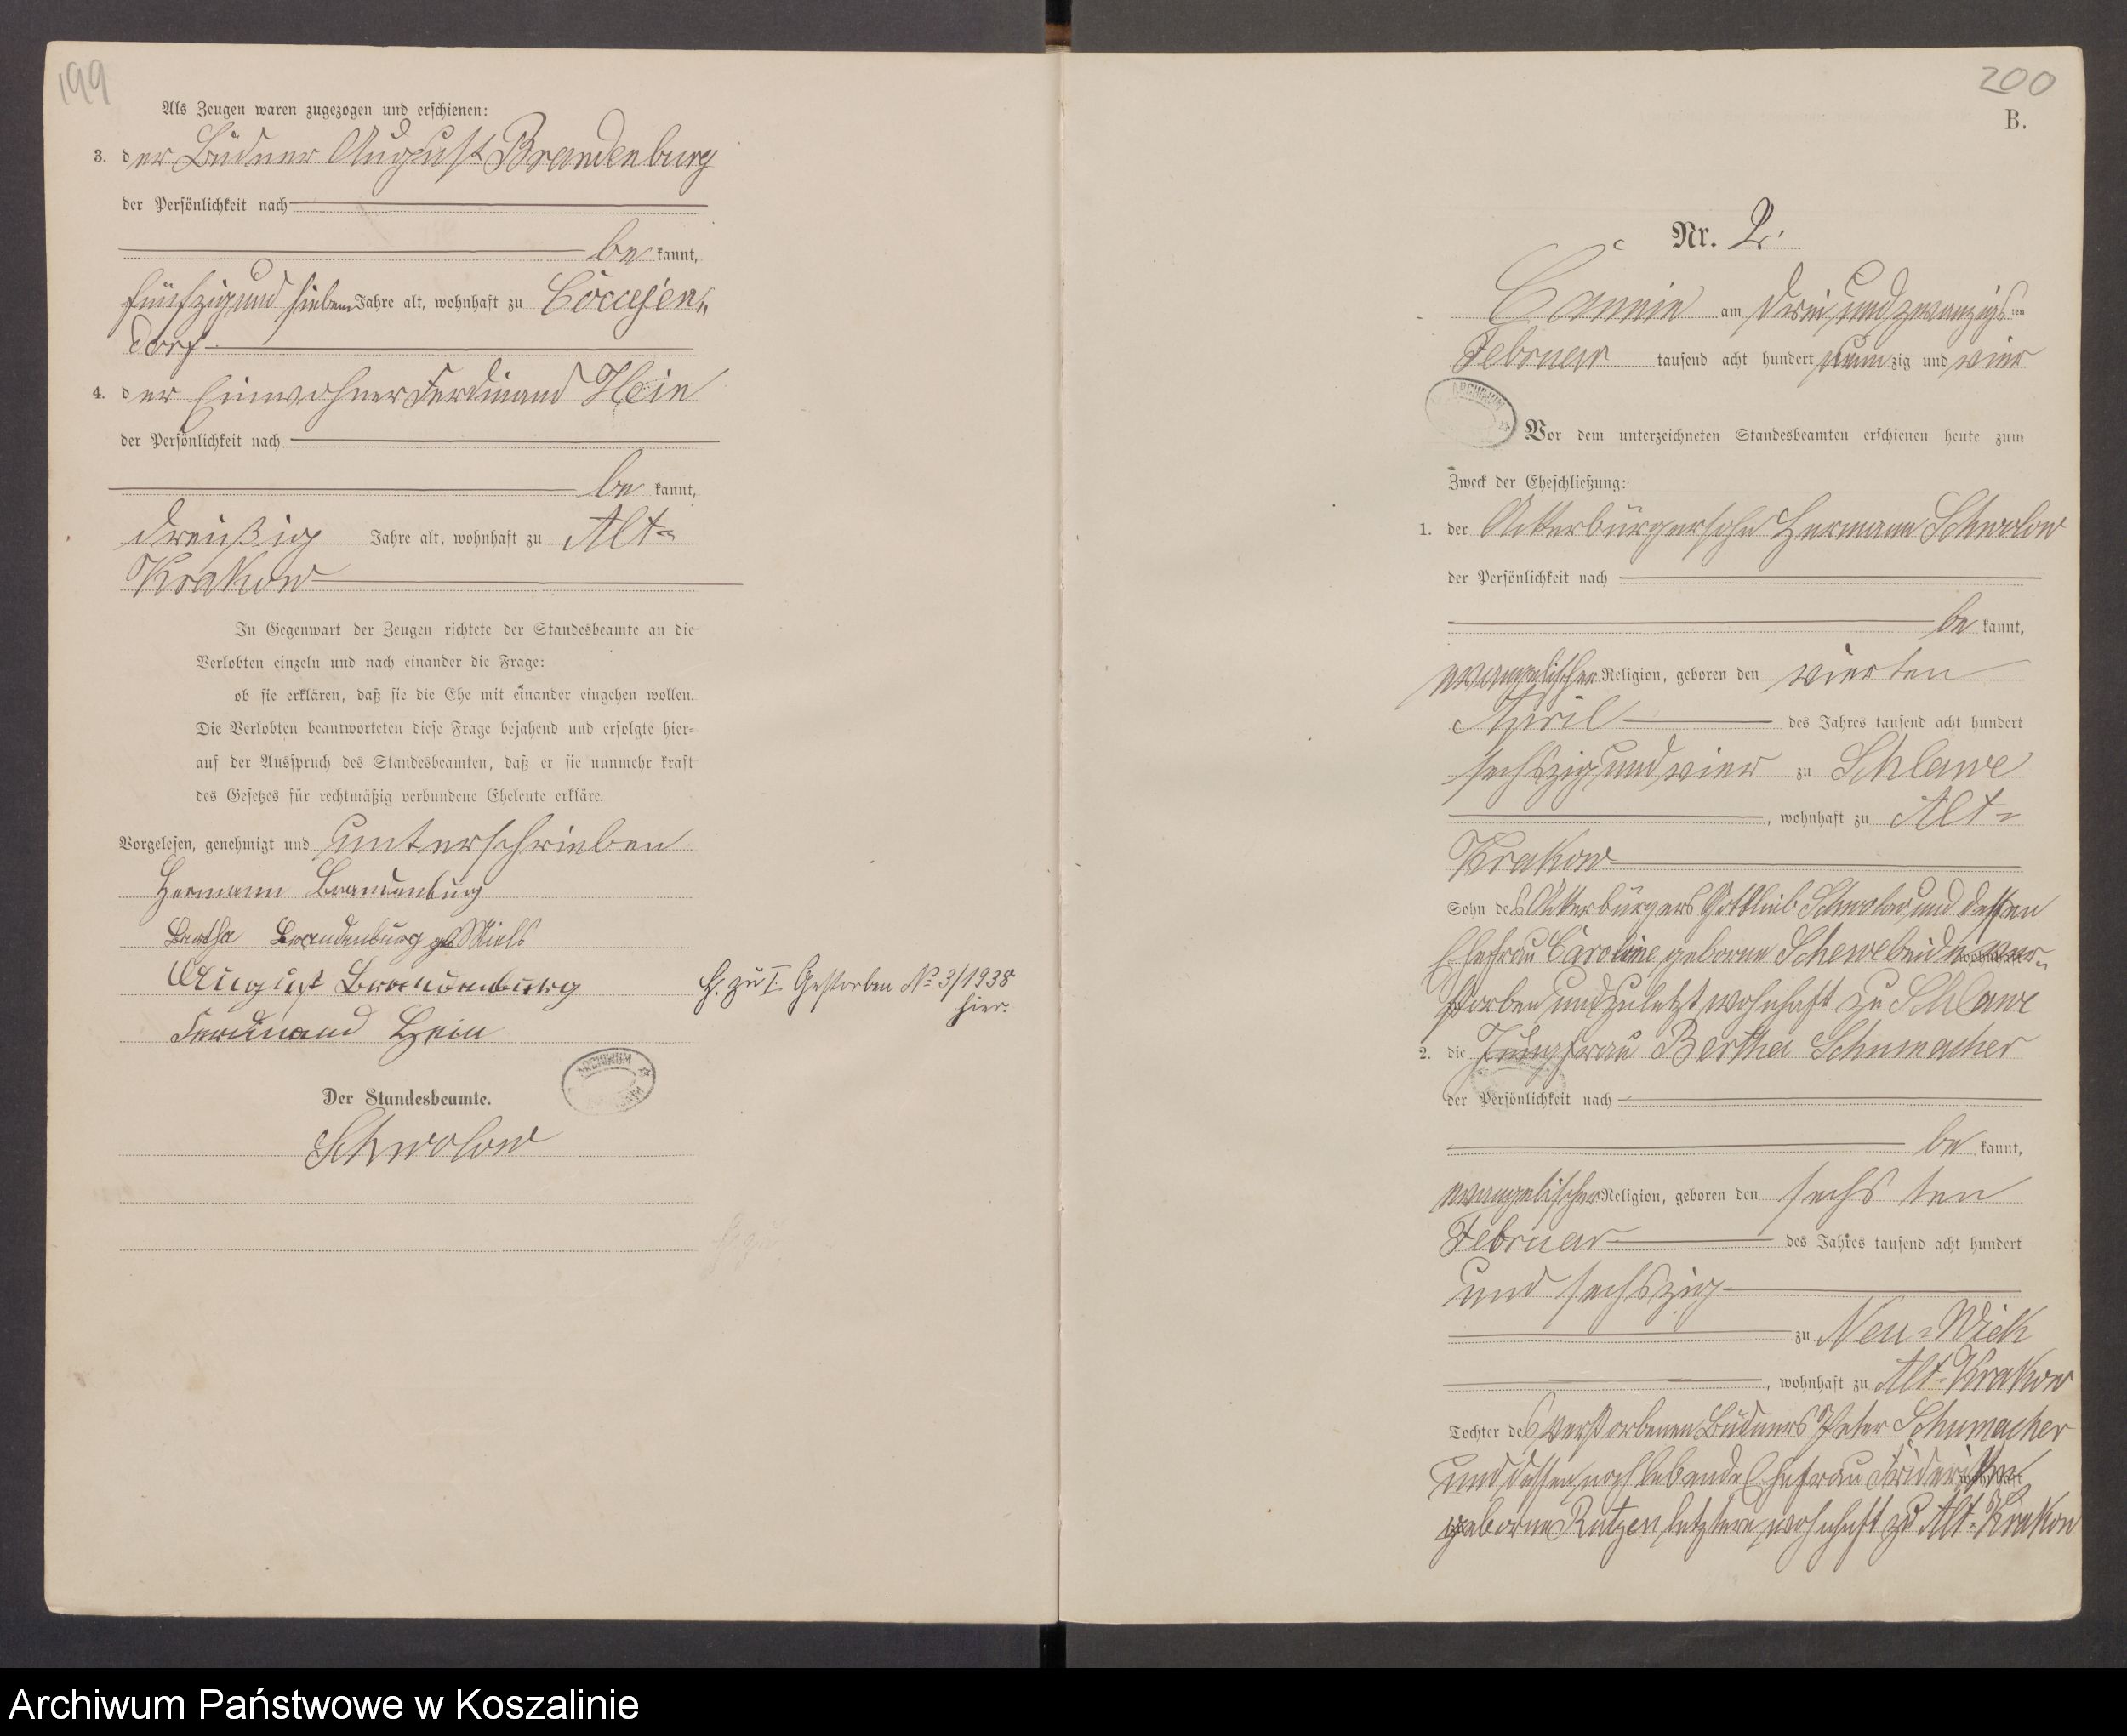 199
Als Zeugen waren zugezogen und erschienen:
3. der Büdner August Brandenburg
der Persönlichkeit nach
be kannt,
fünfzig und sieben Jahre alt, wohnhaft zu Coccejen„
dorf
4. der Einwohner Ferdinand Hein
der Persönlichkeit nach
be kannt,
dreißig Jahre alt, wohnhaft zu Alt=
Krakow
In Gegenwart der Zeugen richtete der Standesbeamte an die
Verlobten einzeln und nach einander die Frage:
ob sie erklären, daß sie die Ehe mit einander eingehen wollen.
Die Verlobten beantworteten diese Frage bejahend und erfolgte hier=
auf der Ausspruch des Standesbeamten, daß er sie nunmehr kraft
des Gesetzes für rechtmäßig verbundene Eheleute erkläre.
Vorgelesen, genehmigt und unterschrieben
Hermann Brandenburg
Bertha Brandenburg geb Miels
August Brandenburg
Ferdinand Hein
H. zu I. Gestorben No 3/1938
hier.
ARCHIWUM
Der Standesbeamte.
Schwolow
200
B.
Nr. 2.
Cannin am drei und zwanzigs ten
Februar tausend acht hundert neun zig und vier
ARCHIWUM
Vor dem unterzeichneten Standesbeamten erschienen heute zum
Zweck der Eheschließung:
1. der Ackerbürgersohn Hermann Schwolow
der Persönlichkeit nach
be kannt,
evangelischer Religion, geboren den vierten
April des Jahres tausend acht hundert
sechszig und vier zu Schlawe
, wohnhaft zu Alt=
Krakow
Sohn des Ackerbürgers Gottlieb Schwolow und dessen
Ehefrau Caroline geborne Schewe beide ver„
storben und zuletzt wohnhaft zu Schlawe
2. die Jungfrau Bertha Schumacher
der Persönlichkeit nach
be kannt,
evangelischer Religion, geboren den sechs ten
Februar des Jahres tausend acht hundert
und sechszig
zu Neu=Wiek
, wohnhaft zu Alt=Krakow
Tochter des verstorbenen Büdners Peter Schumacher
und dessen noch lebende Ehefrau Friderike
geborne Rutzen letztere wohnhaft zu Alt=Krakow
Archiwum Państwowe w Koszalinie